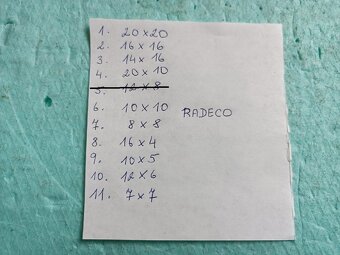 1. 20×20
2. 16×16
3. 14×16
4. 20×10
5. 12×8
6. 10×10
RADECO
7. 8×8
8. 16×4
9. 10×5
10. 12×6
11. 7×7